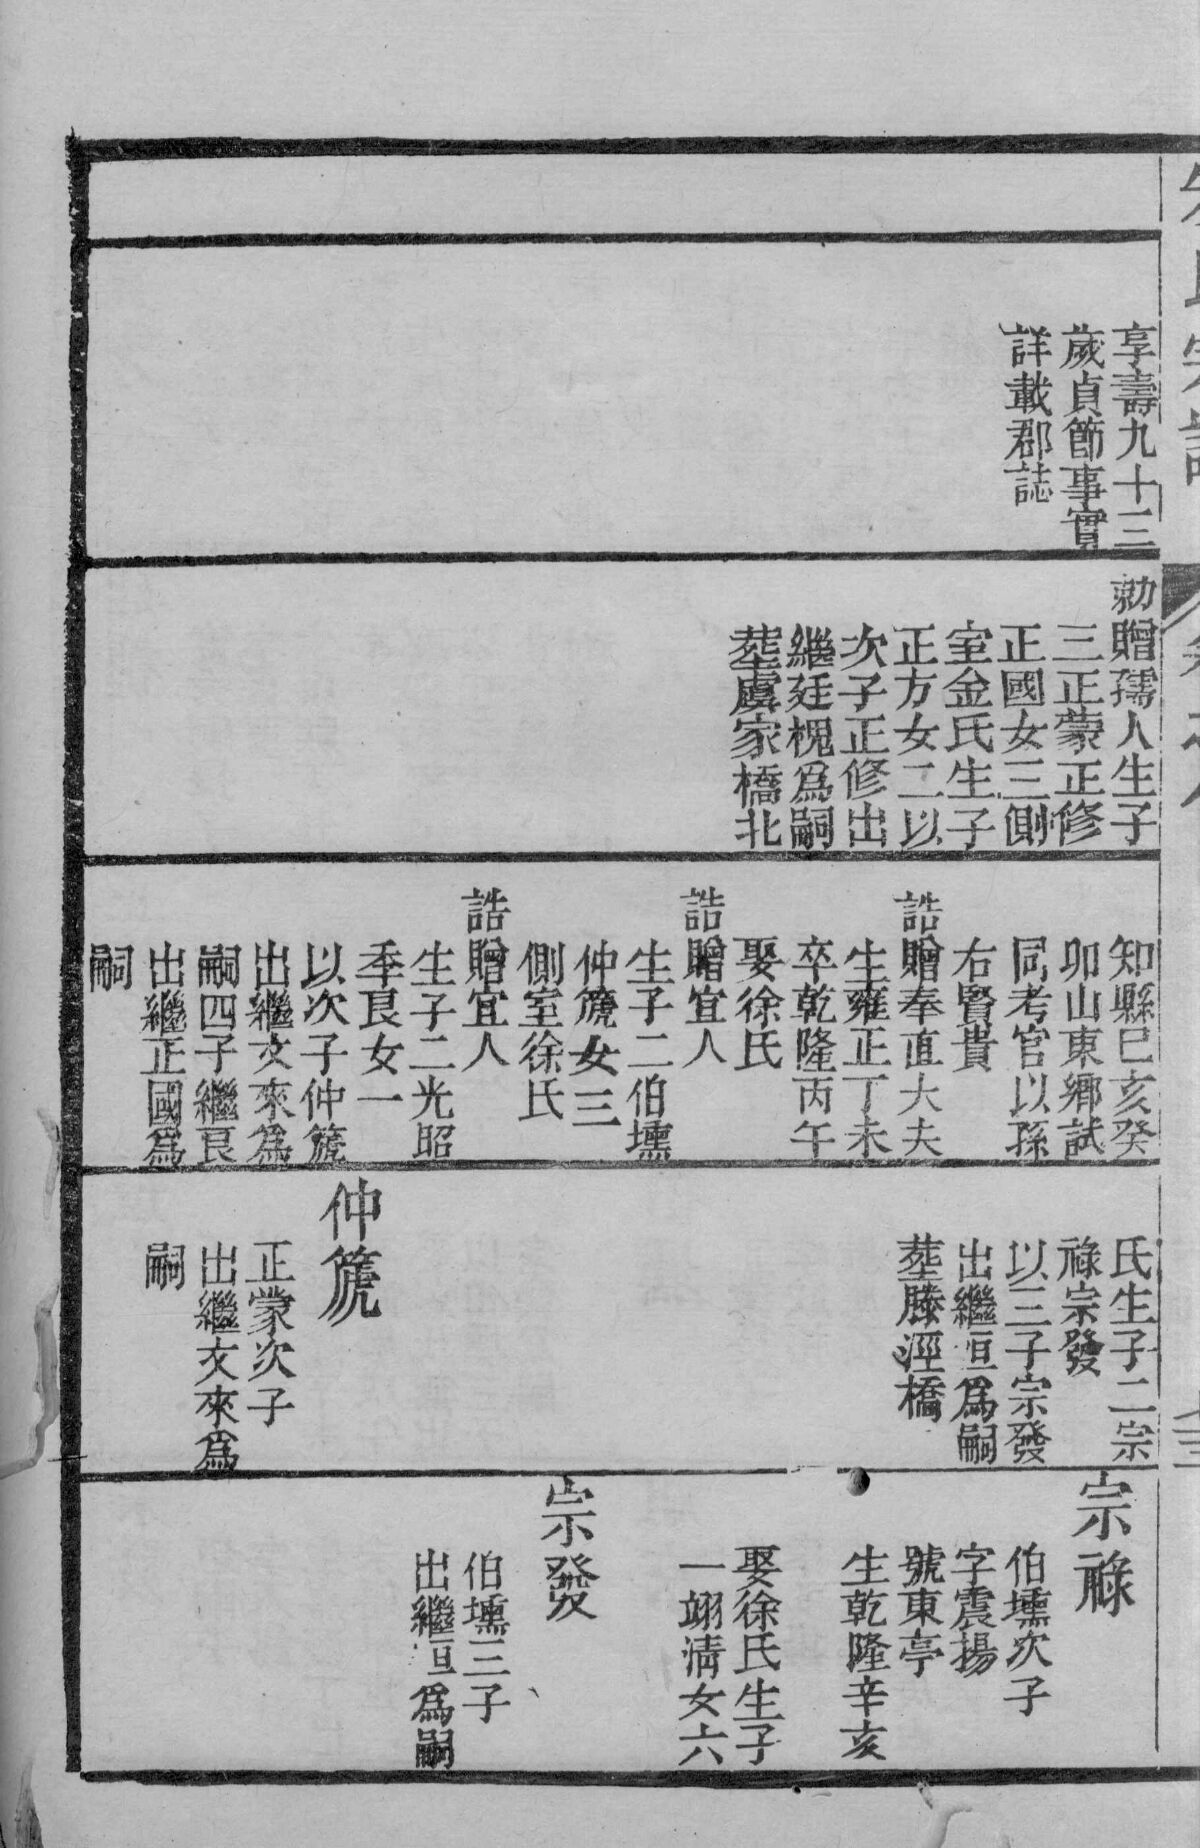 享壽九十三
歲貞節事實
詳載郡誌
勅贈孺人生子
三正蒙正修
正國女三側
室金氏生子
正方女二以
次子正修出
繼廷槐爲嗣
塟虞家橋北
知縣巳亥癸
卯山東鄉試
同考官以孫
右賢貴
誥贈奉直大夫
生雍正丁未
卒乾隆丙午
娶徐氏
誥贈宜人
生子二伯壎
仲箎女三
側室徐氏
誥贈宜人
生子二光昭
季良女一
以次子仲箎
出繼文來爲
嗣四子繼良
出繼正國爲
嗣
氏生子二宗
祿宗發
以三子宗發
出繼恒爲嗣
塟滕涇橋
仲箎
正蒙次子
出繼文來爲
嗣
宗祿
伯壎次子
字震揚
號東亭
生乾隆辛亥
娶徐氏生子
一翊清女六
宗發
伯壎三子
出繼恒爲嗣